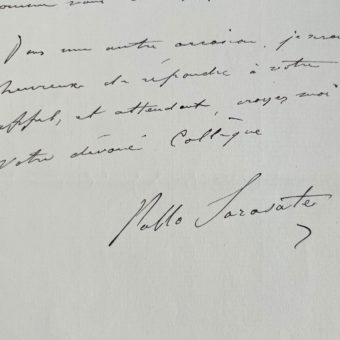 vous
Dans une autre occasion, je serai
heureux de répondre à votre
appel, et attendant, croyez moi
Votre dévoué Collègue
Pablo Sarasate